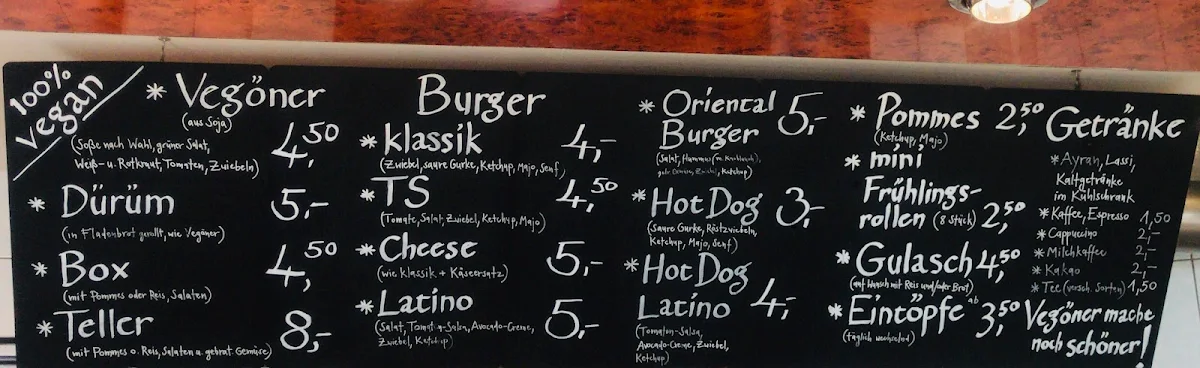 100% vegan
* Vegöner 4,50
(aus Soja)
(Soße nach Wahl, grüner Salat,
Weiß- u. Rotkraut, Tomaten, Zwiebeln)
* Dürüm 5,-
(in Fladenbrot gerollt, wie Vegöner)
* Box 4,50
(mit Pommes oder Reis, Salaten)
* Teller 8,-
(mit Pommes o. Reis, Salaten u. gebrat. Gemüse)
Burger
* klassik 4,-
(Zwiebel, saure Gurke, Ketchup, Majo, Senf)
* TS 4,50
(Tomate, Salat, Zwiebel, Ketchup, Majo)
* Cheese 5,-
(wie klassik + Käseersatz)
* Latino 5,-
(Salat, Tomaten-Salsa, Avocado-Creme,
Zwiebel, Ketchup)
* Oriental 5,-
Burger
(Salat, Hummus m. Knoblauch,
Zwiebel, Ketchup)
* Hot Dog 3,-
(saure Gurke, Röstzwiebeln,
Ketchup, Majo, Senf)
* Hot Dog
Latino 4,-
(Tomaten-Salsa,
Avocado-Creme, Zwiebel,
Ketchup)
* Pommes 2,50
(Ketchup, Majo)
* mini
Frühlings-
rollen (8 Stück) 2,50
* Gulasch 4,50
(auf Wunsch mit Reis und/oder Brot)
* Eintöpfe ab 3,50
(täglich wechselnd)
Getränke
* Ayran, Lassi,
Kaltgetränke
im Kühlschrank
* Kaffee, Espresso 1,50
* Cappuccino 2,-
* Milchkaffee 2,-
* Kakao 2,-
* Tee (versch. Sorten) 1,50
Vegöner mache
noch schöner!